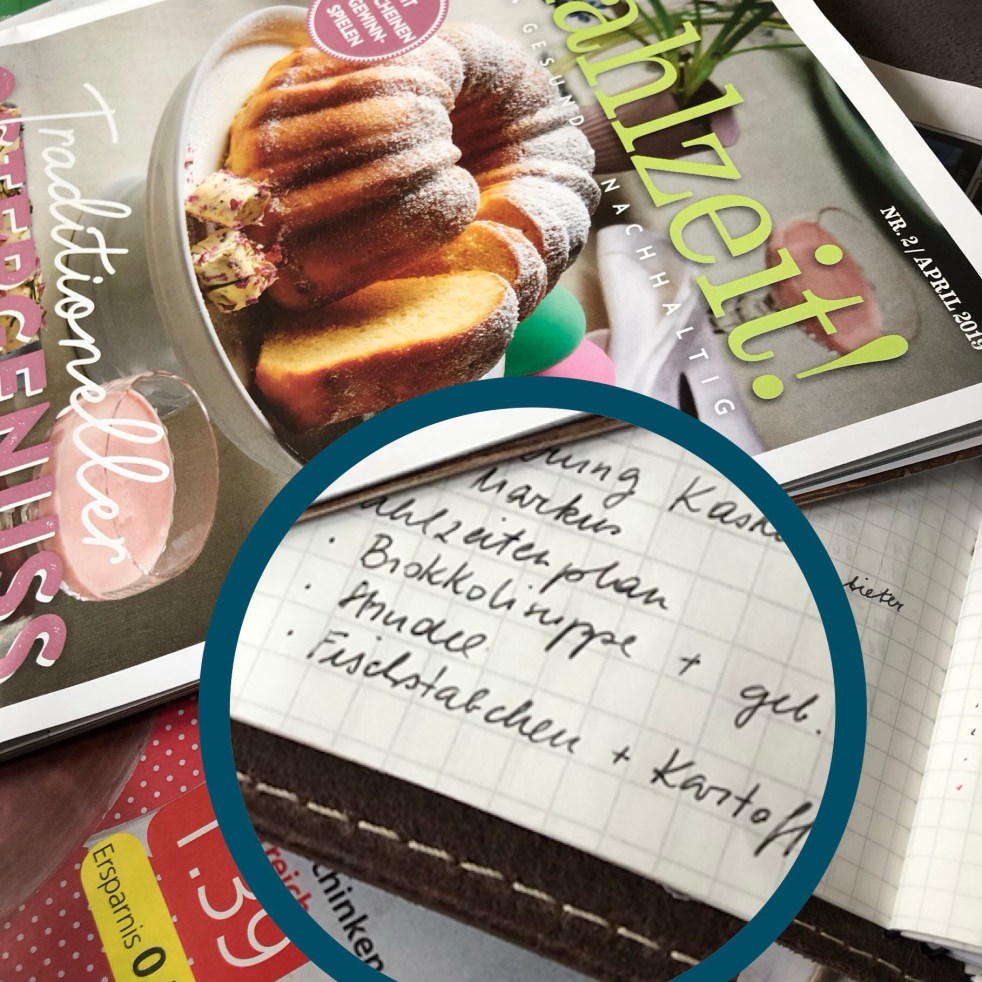 MIT
SCHEINEN
GEWINN-
SPIELEN
ahlzeit!
GESUND
NACHHALTIG
NR. 2 / APRIL 2019
Traditioneller
OSTERGENUSS
Kas
Markus
ahlzeitenplan
· Brokkolisuppe + geb.
· Strudel
· Fischstäbchen + Kartoff
bieter
Ersparnis 0
1.39
reich
chinken